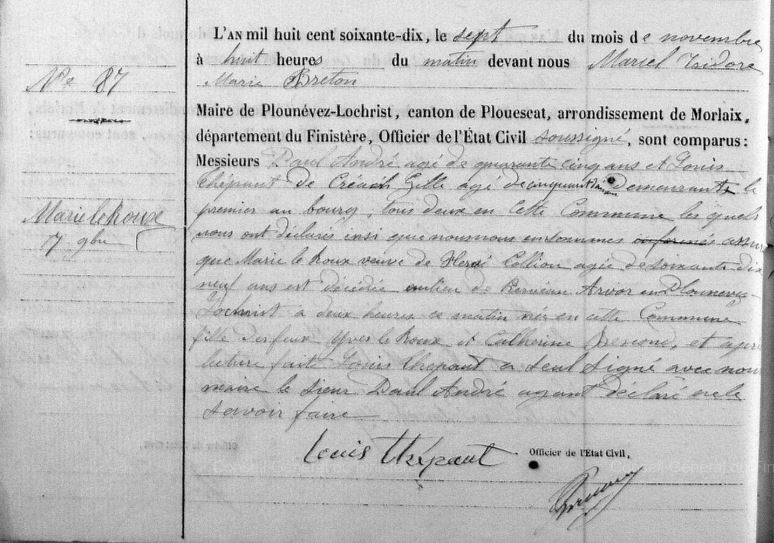 L'AN mil huit cent soixante-dix, le sept du mois de novembre
à huit heures du matin devant nous Mariel Isidore
Marie Breton
Maire de Plounévez-Lochrist, canton de Plouescat, arrondissement de Morlaix,
département du Finistère, Officier de l'État Civil soussigné, sont comparus:
Messieurs Paul André agé de quarante cinq ans et Louis
Chépaut de Créach Gille agé de cinquante ans Demeurants le
premier au bourg, tous deux en cette Commune les quels
nous ont déclarés insi que nous nous en sommes assuré
que Marie le Roux veuve de Hervé Collion agée de soixante dix
neuf ans est décédée au lieu de Kervéan Arvor en Plounevez
Lochrist a deux heures ce matin née en cette Commune
fille des feux Yves le Roux et Catherine et apres
lecture faite Louis Chepaut a seul signé avec nous
maire le sieur Paul André ayant déclaré ne le
savoir faire
Louis Chépaut
Officier de l'État Civil,
N.º 87
Marie le Roux
7 9bre
Conseil Général du Fin